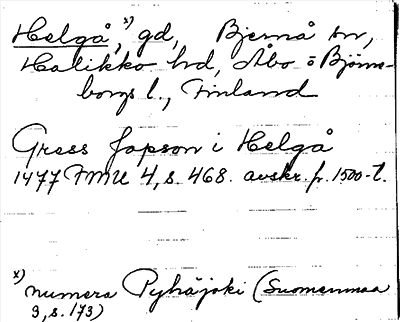 Helgå, x) gd, Bjernå sn,
Halikko hd, Åbo o Björne-
borgs l., Finland
Gress Japson i Helgå
1477 FMU 4, s. 468. avskr. fr. 1500-t.
x) numera Pyhäjoki (Suomenmaa
3, s. 173)